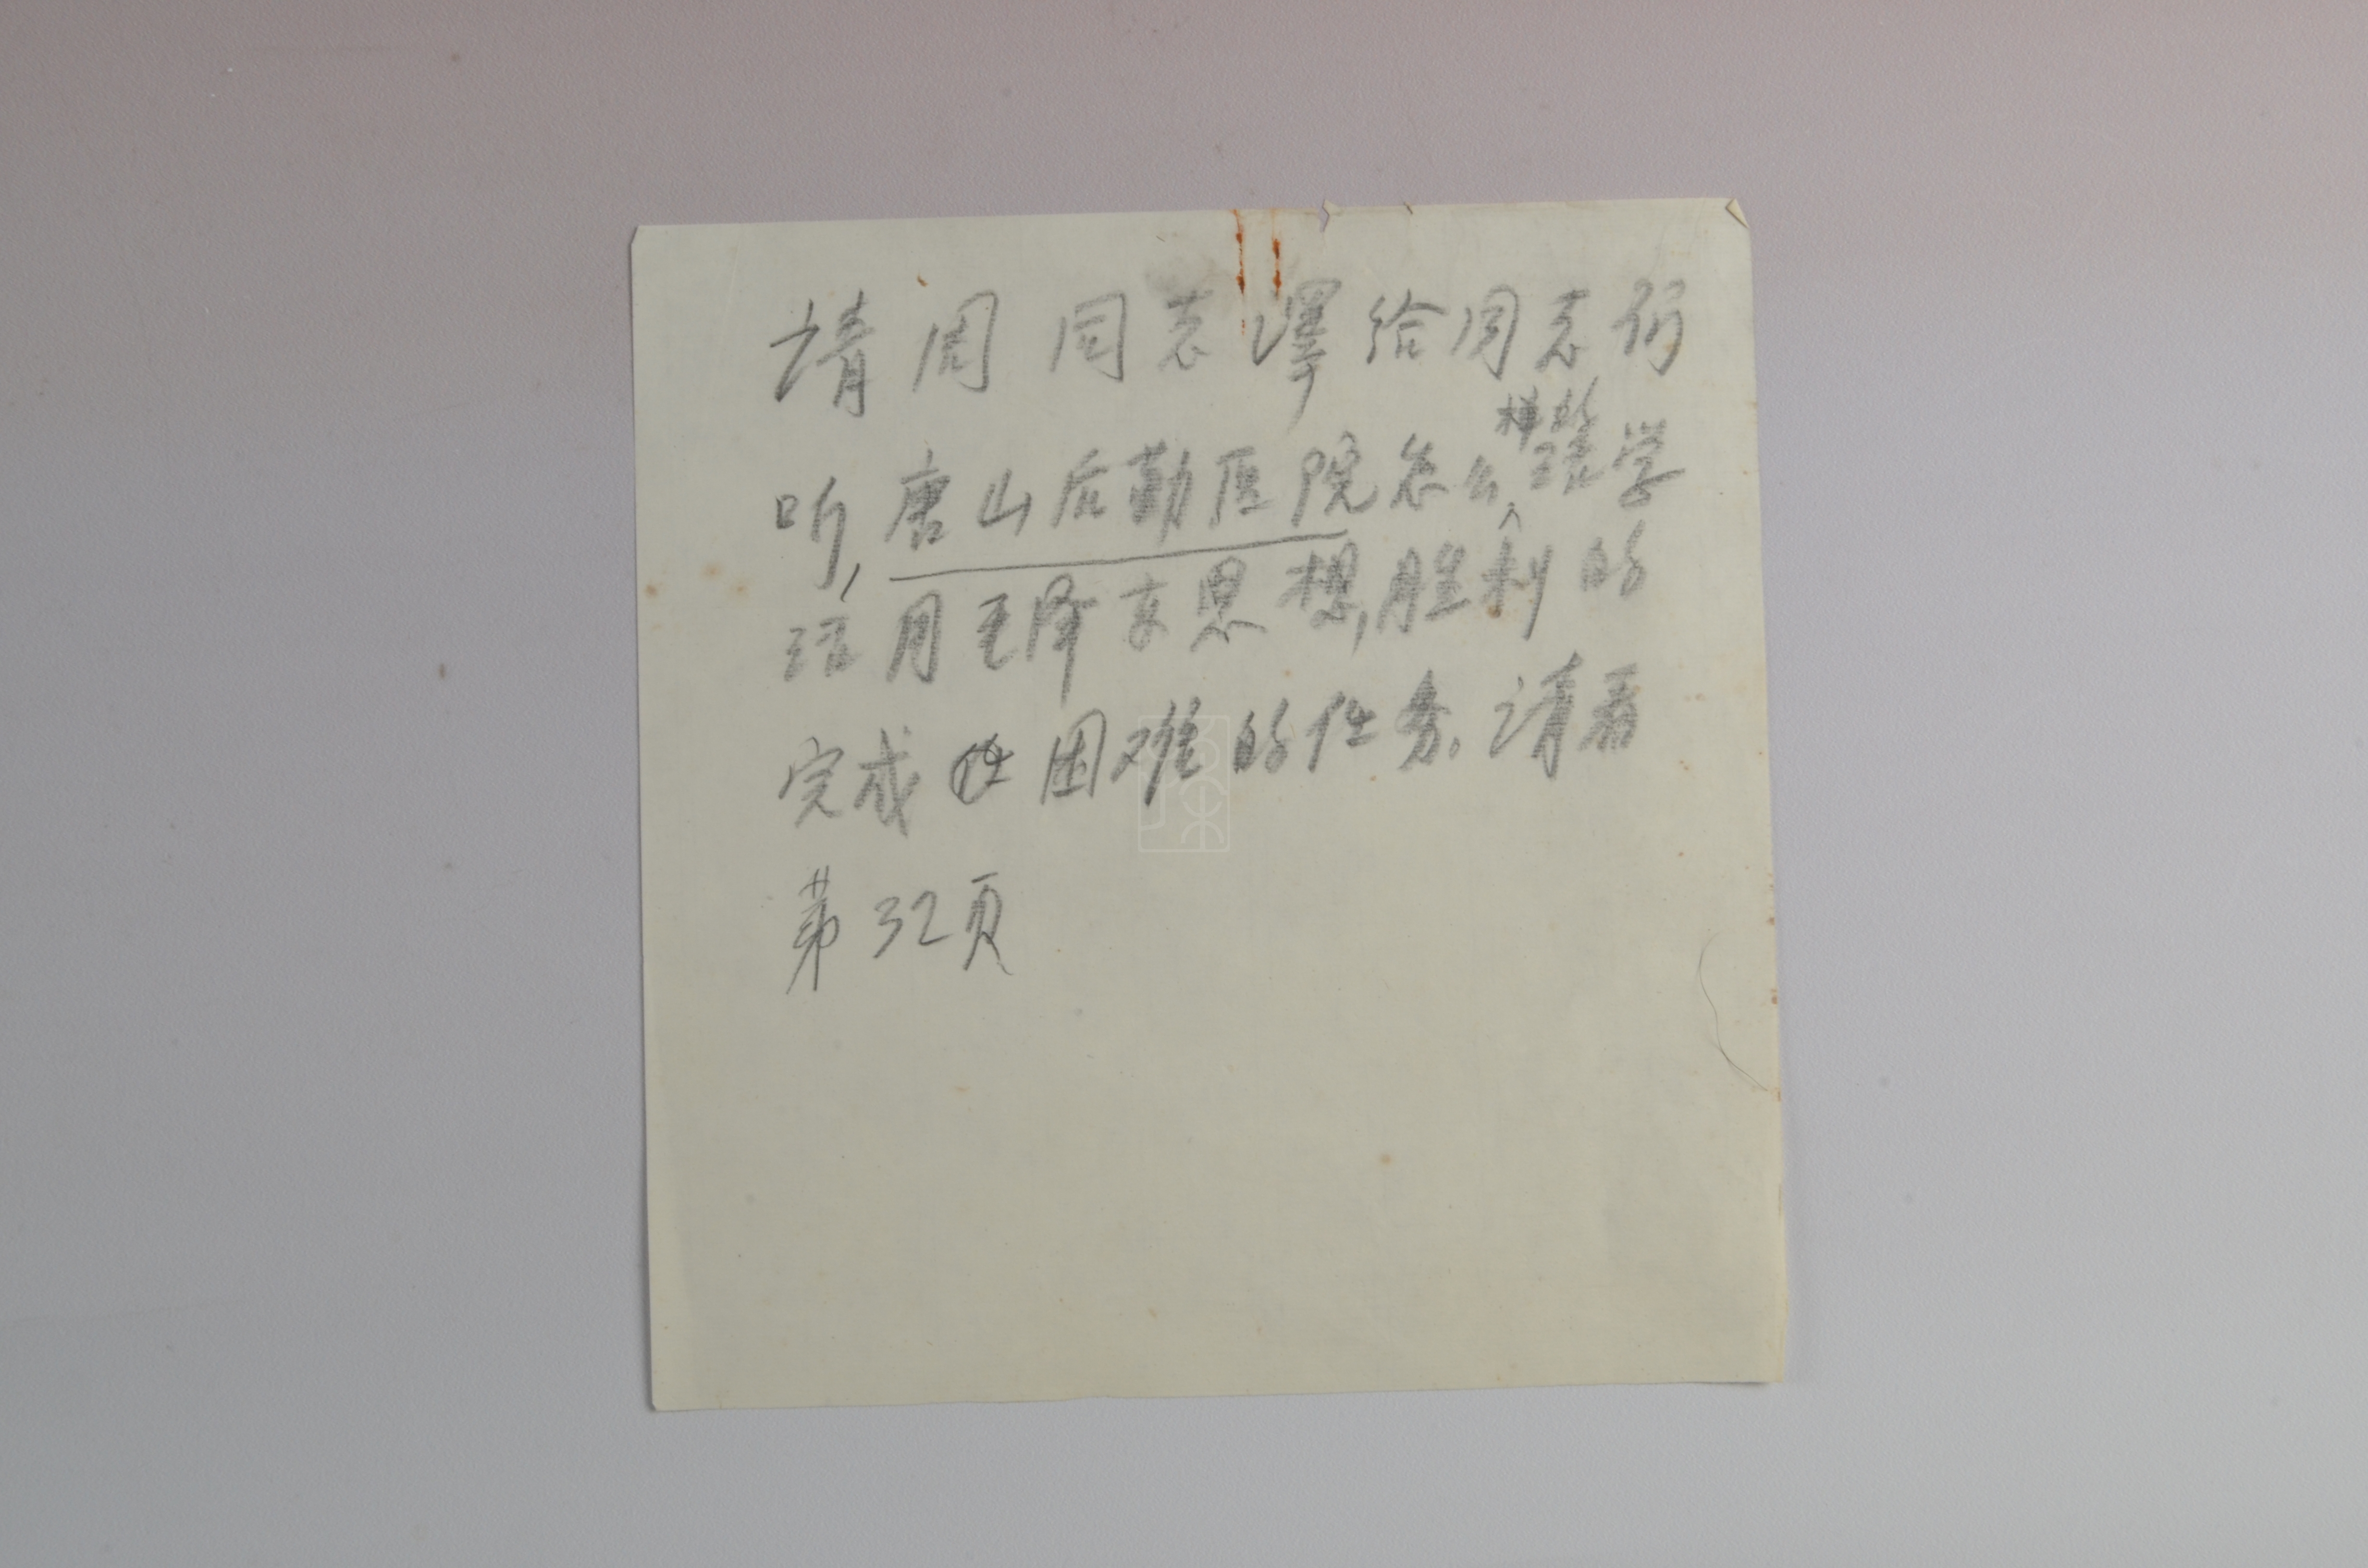 请周同志译给同志们
听,唐山后勤医院怎么样的活学
活用毛泽东思想,胜利的
完成困难的任务。请看
第32页